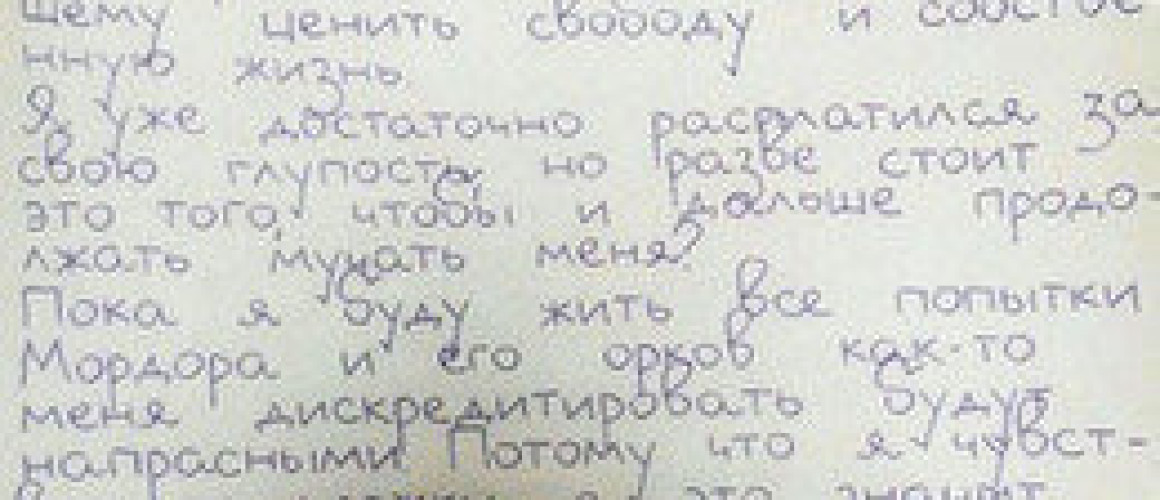 шему ценить свободу и собстве
нную жизнь.
Я уже достаточно расплатился за
свою глупость, но разве стоит
это того, чтобы и дальше продо-
лжать мучать меня?
Пока я буду жить все попытки
Мордора и его орков как-то
меня дискредитировать будут
напрасными. Потому что я чувст-
это значит